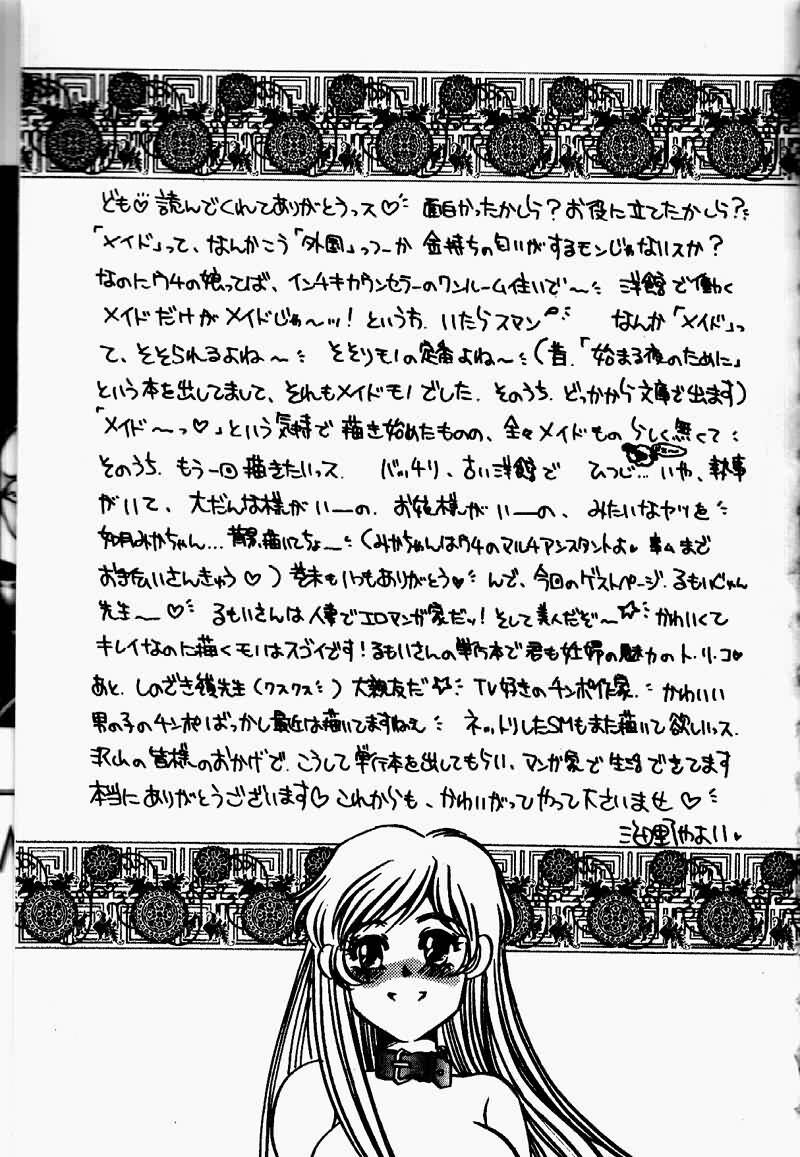 ども♡読んでくれてありがとうっス♡ 面白かったかしら?お役に立てたかしら?
「メイド」って、なんかこう「外国」っつーか 金持ちの匂いがするモンじゃないスか?
なのにウチの娘ってば、インチキカウンセラーのワンルーム住いで〜 洋館で働く
メイドだけがメイドじゃ〜ッ!というち. いたらスマン なんか「メイド」っ
て、そそられるよね〜 そそりモノの定番よね〜(昔.「始まる夜のために」
という本を出してまして、それもメイドモノでした. そのうち. どっかから文庫で出ます)
「メイド〜っ♡」という気持で描き始めたものの、全々メイドものらしく無くて
そのうち. もう一回描きたいっス. バッチリ、古い洋館で ひつじ…いや、執事
がいて、大だんな様がいーの. お嬢様がいーの、みたいなヤツを
如月みかちゃん… 背景描いてちょ〜(みかちゃんはウチのマルチアシスタントよ♥事ムまで
おきてつだいさんきゅう♡) 巻末もいつもありがとう♥ んで、今回のゲストページ. るもいじゅん
先生〜♡ るもいさんは人妻でエロマンガ家だッ!そして美人だぞ〜 かわいくて
キレイなのに描くモノはスゴイです!るもいさんの単行本で君も妊婦の魅力のト.リ.コ♥
あと. しのざき嶺先生(クスクス) 大親友だ TV好きのチンポ作家. かわいい
男の子のチンポばっかし最近は描いてますねぇ ネットリしたSMもまた描いて欲しいっス.
沢山の皆様のおかげで. こうして単行本を出してもらい、マンガ家で生活できてます
本当にありがとうございます♡これからも、かわいがってやって下さいませ♡
海野やよい♥